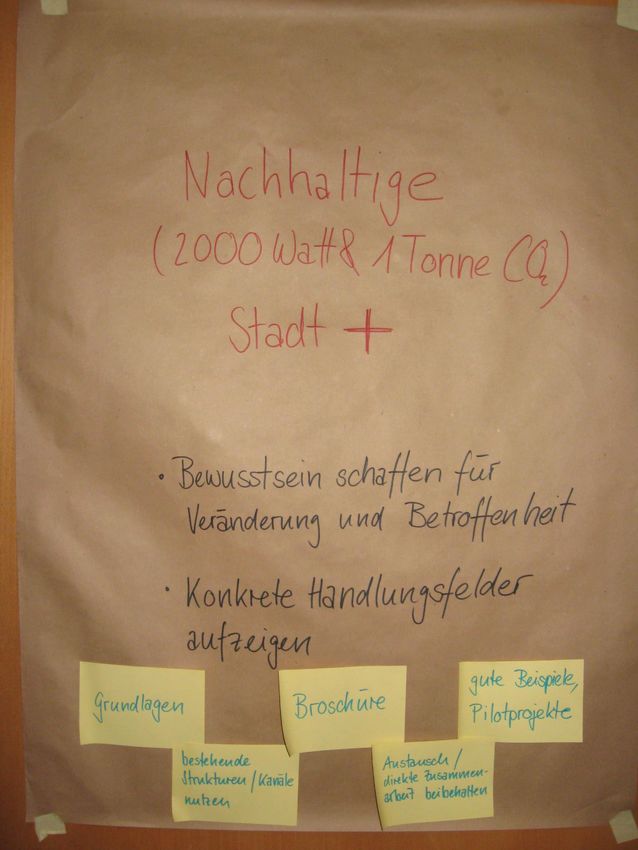 Nachhaltige
(2000 Watt & 1 Tonne CO₂)
Stadt +
• Bewusstsein schaffen für
Veränderung und Betroffenheit
• Konkrete Handlungsfelder
aufzeigen
Grundlagen
Broschüre
gute Beispiele,
Pilotprojekte
bestehende
Strukturen/Kanäle
nutzen
Austausch/
direkte Zusammen-
arbeit beibehalten